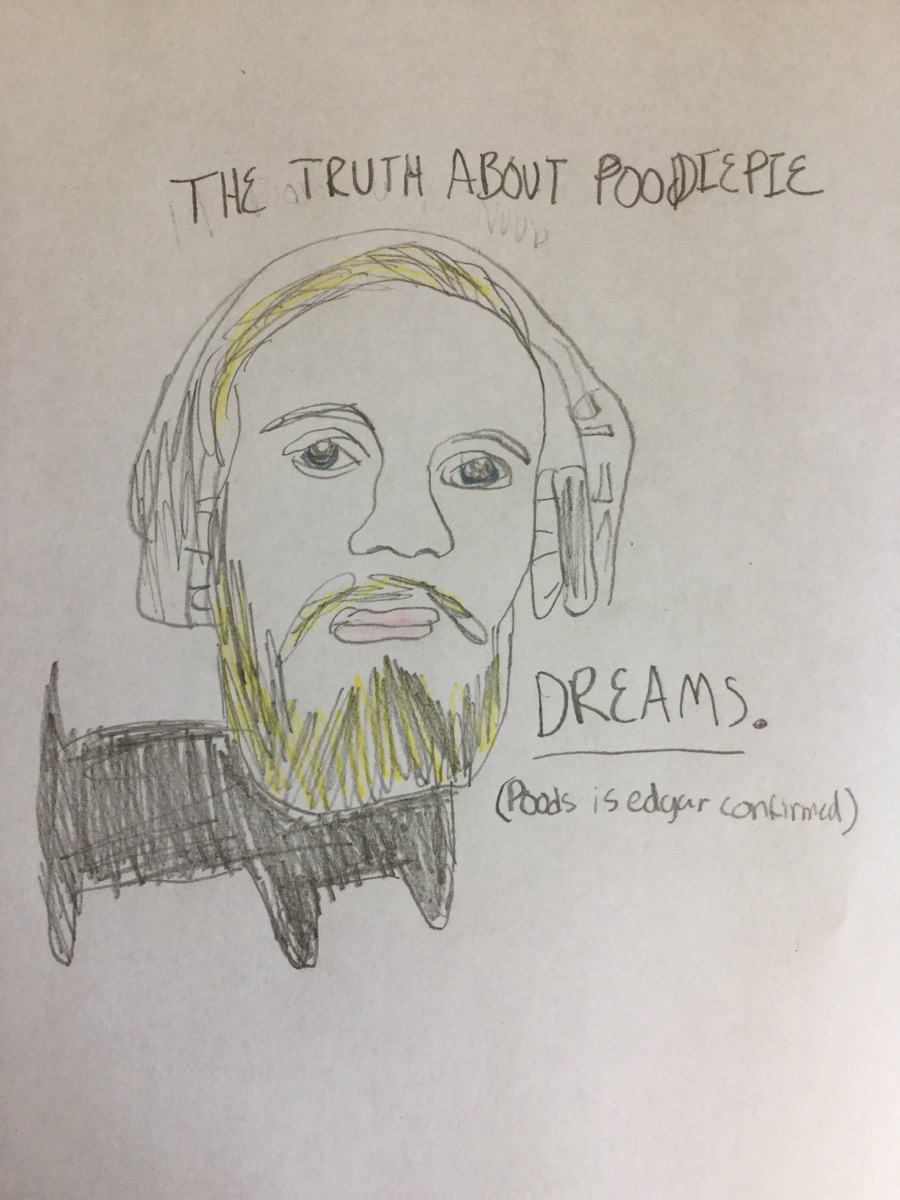 THE TRUTH ABOUT POODIEPIE
DREAMS.
(Poods is edgar confirmed)